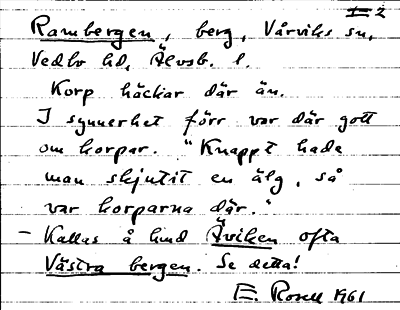 1-2
Rambergen, berg, Vårviks sn,
Vedbo hd, Älvsb. l.
Korp häckar där än.
I synnerhet förr var där gott
om korpar. "Knappt hade
man skjutit en älg, så
var korparna där."
- Kallas å hmd Åviken ofta
Västra bergen. Se detta!
E. Rosell 1961